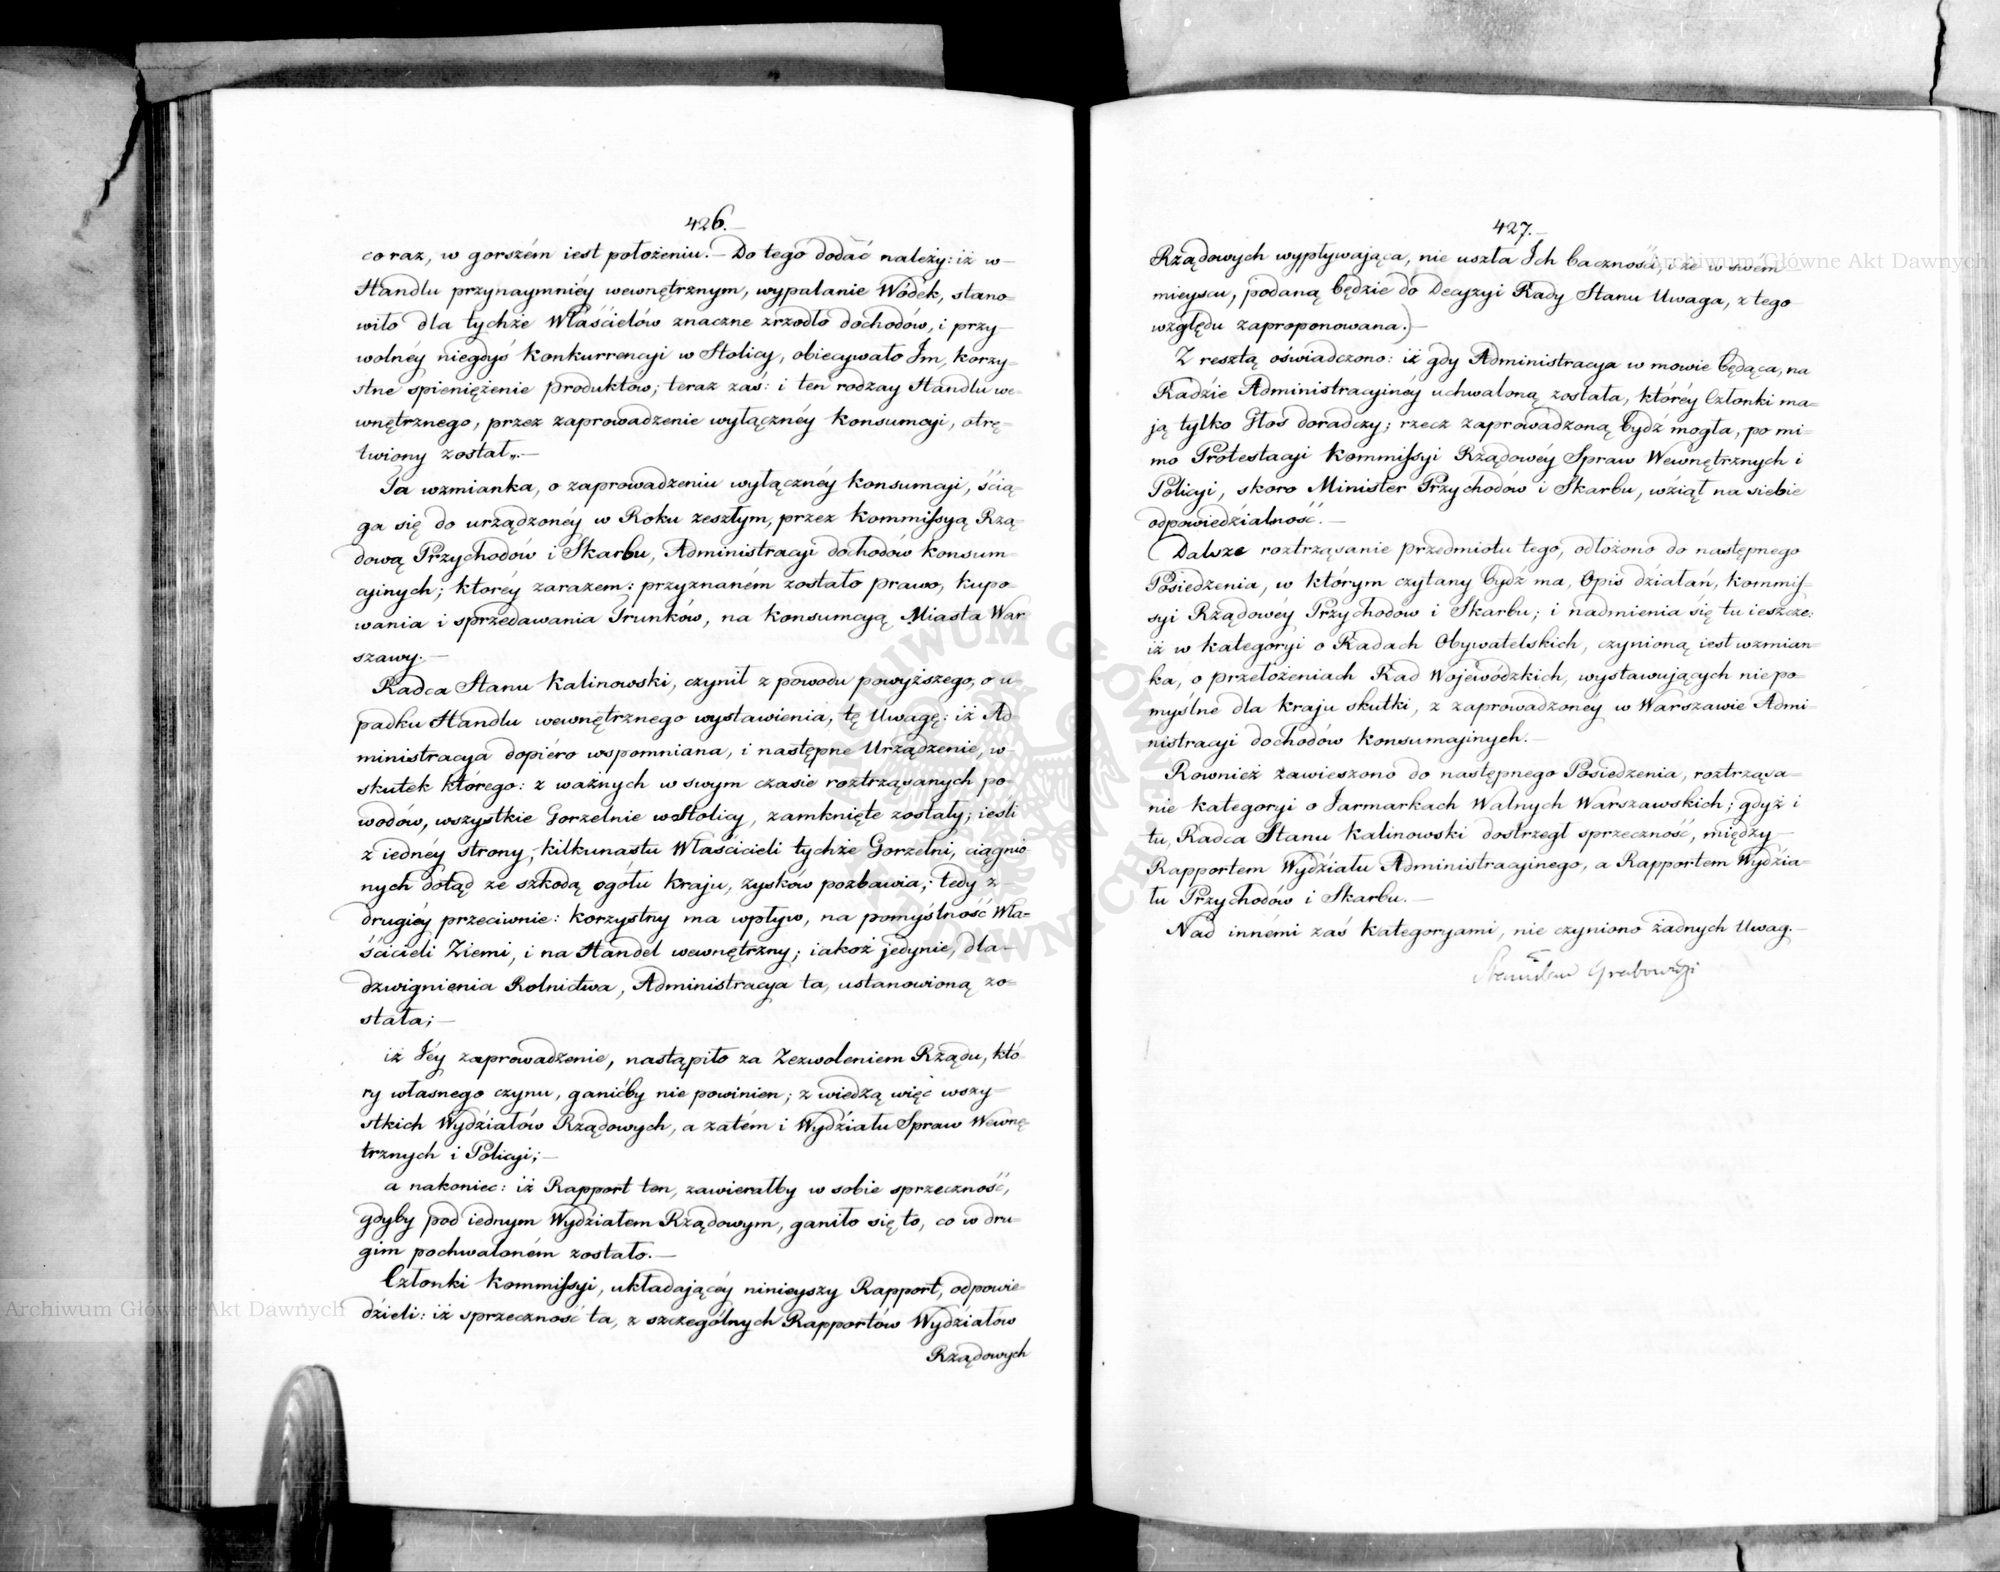 426.
co raz, w gorszém iest położeniu. — Do tego dodać należy: iż w
Handlu przynaymniéy wewnętrznym, wypalanie Wódek, stano=
wiło dla tychże Właścielów znaczne zrzodło dochodów, i przy
wolnéy niegdyś Konkurrencyi w Stolicy, obiecywało Im, korzy=
stne spieniężenie produktów; teraz zaś: i ten rodzay Handlu we=
wnętrznego, przez zaprowadzenie wyłącznéy Konsumcyi, otrę=
twiony został„. —
Ta wzmianka, o zaprowadzeniu wyłącznéy Konsumcyi, ścią=
ga się do urządzonéy w Roku zeszłym, przez Kommissyą Rzą=
dową Przychodów i Skarbu, Administracyi dochodów konsum=
cyinych; któréy zarazem; przyznaném zostało prawo, kupo=
wania i sprzedawania Trunków, na Konsumcyą Miasta War
szawy. —
Radca Stanu Kalinowski, czynił z powodu powyższego, o u=
padku Handlu wewnętrznego wystawienia, tę Uwagę: iż Ad=
ministracya dopiéro wspomniana, i następne Urządzenie, w
skutek którego: z ważnych w swym czasie roztrząsanych po=
wodów, wszystkie Gorzelnie w Stolicy, zamknięte zostały; ieśli
z iednéy strony, kilkunastu Właścicieli tychże Gorzelni, ciągnio
nych dotąd ze szkodą ogółu Kraju, zysków pozbawia; tedy z
drugiéy przeciwnie: korzystny ma wpływ, na pomyślność Wła=
ścicieli Ziemi, i na Handel wewnętrzny; iakoż jedynie, dla
dzwignienia Rolnictwa, Administracya ta, ustanowioną zo=
stała; —
iż Jéy zaprowadzenie, nastąpiło za Zezwoleniem Rządu, któ=
ry własnego czynu, ganićby nie powinien; z wiedzą więc wszy=
stkich Wydziałów Rządowych, a zatém i Wydziału Spraw Wewnę=
trznych i Policyi; —
a nakoniec: iż Rapport ten, zawierałby w sobie sprzeczność,
gdyby pod iednym Wydziałem Rządowym, ganiło się to, co w dru=
gim pochwaloném zostało. —
Członki Kommissyi, układaiącéy ninieyszy Rapport, odpowie=
dzieli: iż sprzeczność ta, z szczególnych Rapportów Wydziałów
Rządowych
427.
Rządowych wypływaiąca, nie uszła Ich baczności, i że w swém
mieyscu, podaną będzie do Decyzyi Rady Stanu Uwaga, z tego
względu zaproponowana.) —
Z resztą oświadczono: iż gdy Administracya w mowie będąca, na
Radzie Administracyinéy uchwaloną została, któréy Członki ma=
ją tylko Głos doradczy; rzecz zaprowadzoną bydź mogła, po mi=
mo Protestacyi Kommissyi Rządowéy Spraw Wewnętrznych i
Policyi, skoro Minister Przychodów i Skarbu, wziął na siebie
odpowiedzialność. —
Dalsze roztrząsanie przedmiotu tego, odłożono do następnego
Posiedzenia, w którym czytany bydź ma, Opis działań, Kommis=
syi Rządowéy Przychodów i Skarbu; i nadmienia się tu ieszcze:
iż w kategoryi o Radach Obywatelskich, czynioną iest wzmian=
ka, o przełożeniach Rad Wojewódzkich, wystawujących niepo=
myślne dla kraju skutki, z zaprowadzonéy w Warszawie Admi=
nistracyi dochodów konsumcyinych. —
Rownież zawieszono do następnego Posiedzenia, roztrząsa=
nie kategoryi o Jarmarkach Walnych Warszawskich; gdyż i
tu, Radca Stanu Kalinowski dostrzegł sprzeczność, między
Rapportem Wydziału Administracyinego, a Rapportem Wydzia=
łu Przychodów i Skarbu. —
Nad innémi zaś kategoryami, nie czyniono żadnych Uwag. —
Stanisław Grabowski
Archiwum Główne Akt Dawnych
Archiwum Główne Akt Dawnych
ARCHIWUM GŁÓWNE AKT DAWNYCH